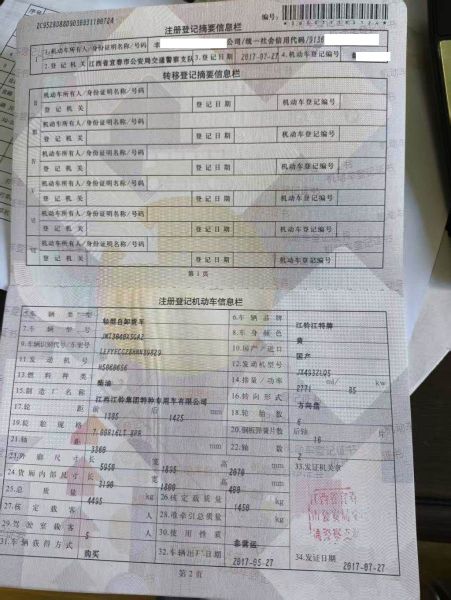 注册登记摘要信息栏
编号:
1.机动车所有人/身份证明名称/号码
公司/统一社会信用代码/9136
2.登记机关 江西省宜春市公安局交通警察支队 3.登记日期 2017-07-27 4.机动车登记编号
转移登记摘要信息栏
机动车所有人/身份证明名称/号码
登记机关 登记日期 机动车登记编号
机动车所有人/身份证明名称/号码
登记机关 登记日期 机动车登记编号
机动车所有人/身份证明名称/号码
登记机关 登记日期 机动车登记编号
机动车所有人/身份证明名称/号码
登记机关 登记日期 机动车登记编号
机动车所有人/身份证明名称/号码
登记机关 登记日期 机动车登记编号
机动车所有人/身份证明名称/号码
登记机关 登记日期 机动车登记编号
第1页
注册登记机动车信息栏
5.车辆类型 轻型自卸货车 6.车辆品牌 江铃江特牌
7.车辆型号 8.车身颜色 黄
9.车辆识别代号/车架号 10.国产/进口 国产
11.发动机号 12.发动机型号 JX493ZLQ5
13.燃料种类 柴油 14.排量/功率 2771 ml/ 85 kw
15.制造厂名称 江西江铃集团特种专用车有限公司 16.转向形式 方向盘
17.轮距 前 1385 后 1425 mm 18.轮胎数 6
19.轮胎规格 7.00R16LT 8PR 20.钢板弹簧片数 后轴 片
21.轴距 3360 mm 22.轴数 2
23.外廓尺寸 长 5950 宽 1895 高 2070 mm 33.发证机关章
24.货厢内部尺寸 长 3190 宽 1800 高 400 mm
25.总质量 4495 kg 26.核定载质量 1450 kg
27.核定载客 5 人 28.准牵引总质量 kg
29.驾驶室载客 人 30.使用性质 非营运
31.车辆获得方式 购买 32.车辆出厂日期 2017-05-27 34.发证日期 2017-07-27
第2页